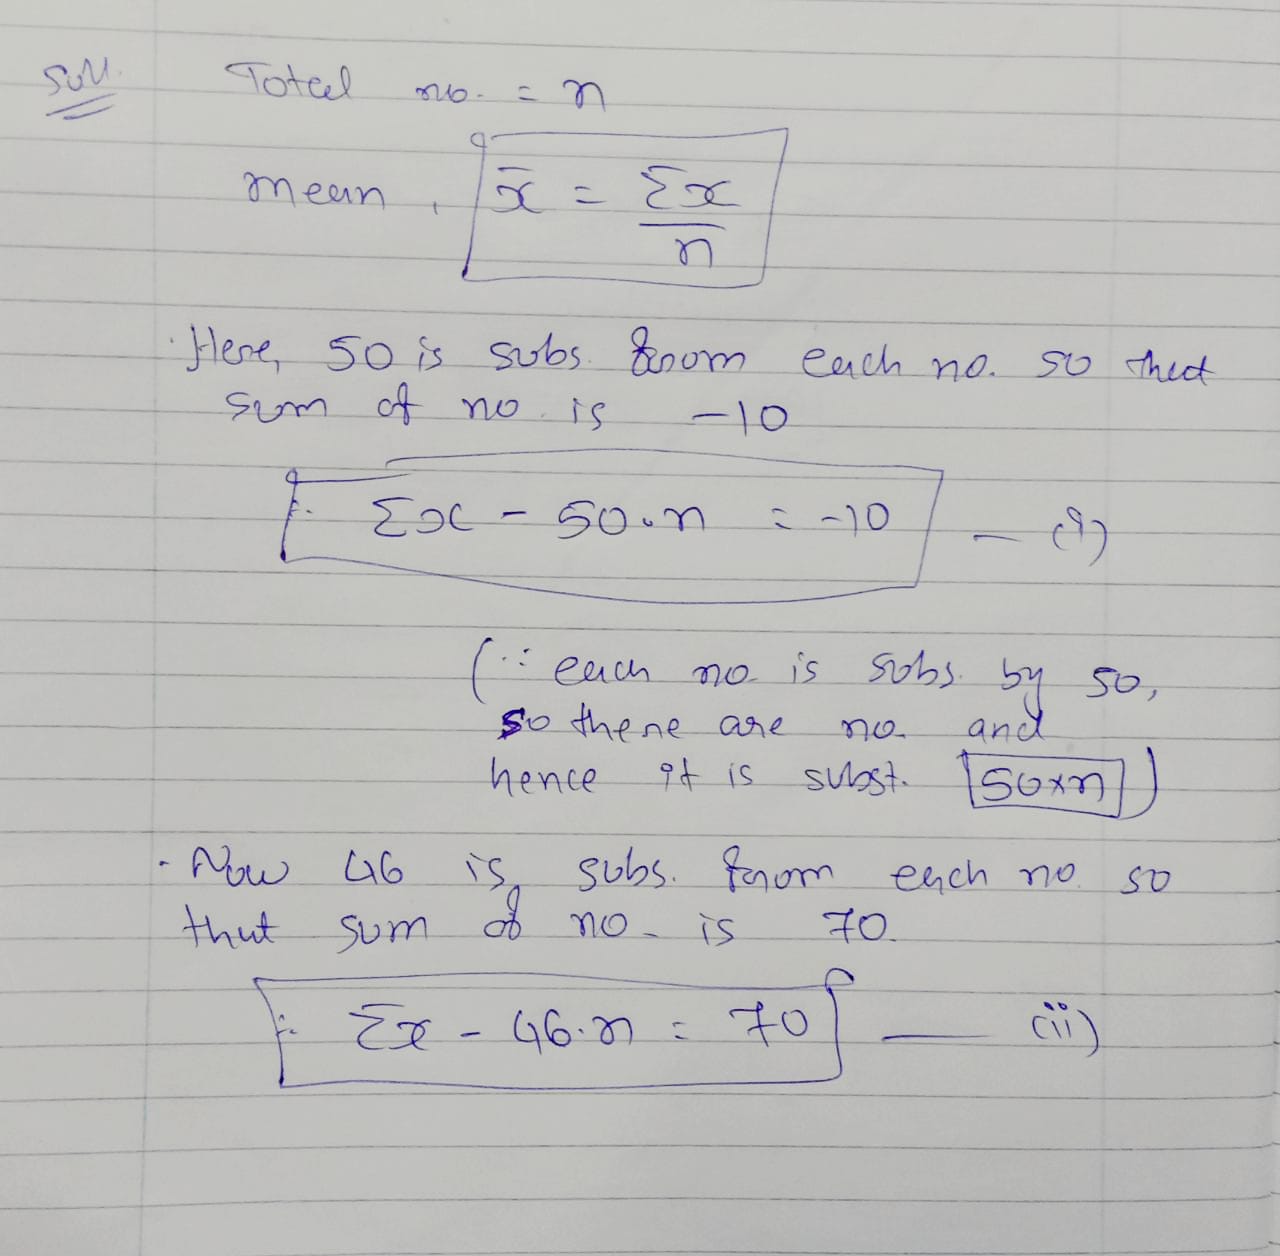 Soln.
Total no. = n
mean, x̄ = Σx
n
· Here, 50 is subs. from each no. so that
sum of no. is -10
∴ Σx - 50.n = -10 — (i)
(∵ each no. is subs. by 50,
so there are no. and
hence it is subst. 50×n)
· Now 46 is subs. from each no. so
that sum of no. is 70.
∴ Σx - 46.n = 70 — (ii)